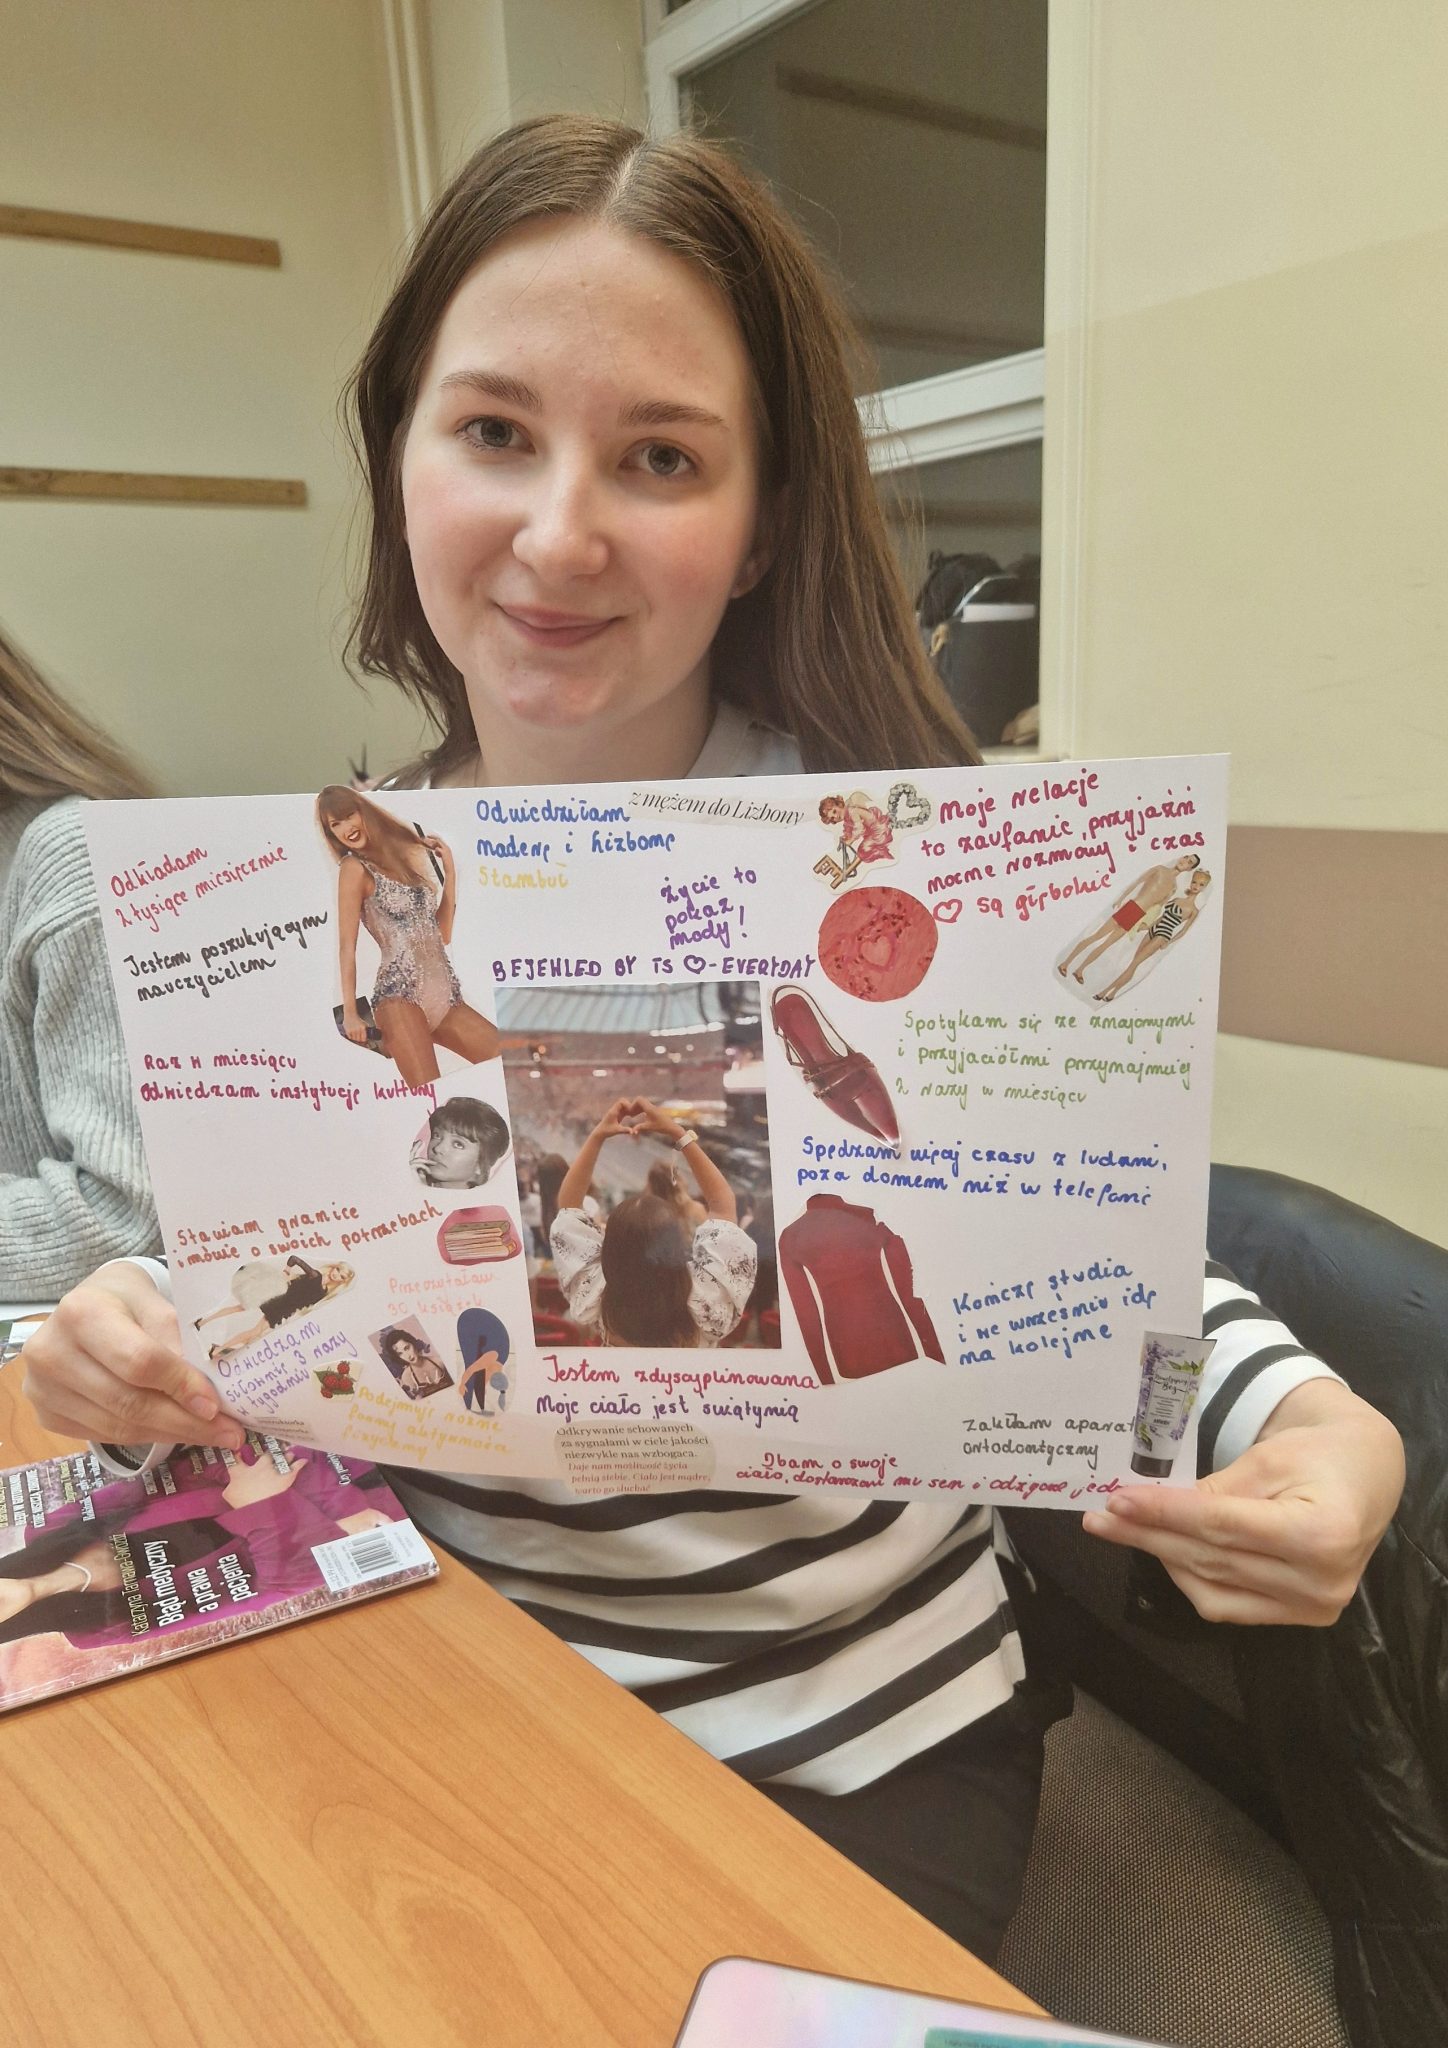 Odkładam
2 tysiące miesięcznie
Jestem poszukującym
nauczycielem
Raz w miesiącu
odwiedzam instytucję kultury
Stawiam granice
i mówię o swoich potrzebach
Przeczytałam
30 książek
Odwiedzam
siłownię 3 razy
w tygodniu
Podejmuję różne
formy aktywności
fizycznej
Odwiedziłam
Maderę i Lizbonę
Stambuł
z mężem do Lizbony
Życie to
pokaz
mody!
BEJEWLED BY TS ♡-EVERYDAY
Moje relacje
to zaufanie, przyjaźń
nocne rozmowy i czas
♡ są głębokie
Spotykam się ze znajomymi
i przyjaciółmi przynajmniej
2 razy w miesiącu
Spędzam więcej czasu z ludźmi,
poza domem niż w telefonie
Kończę studia
i we wrześniu idę
na kolejne
Zakładam aparat
ortodontyczny
Jestem zdyscyplinowana
Moje ciało jest świątynią
Odkrywanie schowanych
za sygnałami w ciele jakości
niezwykle nas wzbogaca.
Daje nam możliwość życia
pełnią siebie. Ciało jest mądre,
warto go słuchać
Dbam o swoje
ciało, dostarczam mu sen i
Katarzyna Tarnawa-Gwóźdź
Błąd medyczny
a prawa
pacjenta